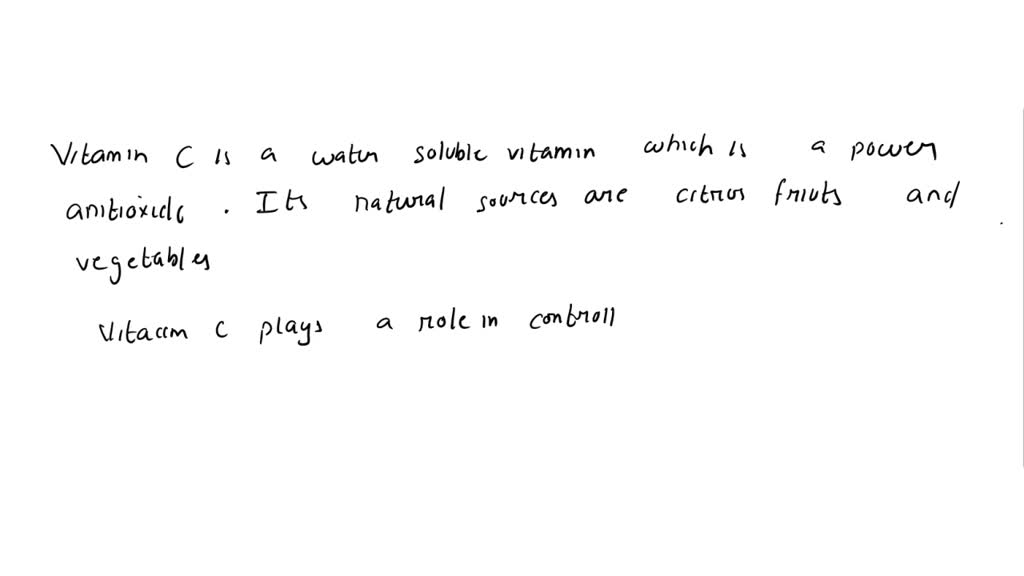 Vitamin C is a water soluble vitamin which is a power
anitioxidc . Its natural sources are citrus friuts and
vegetables
Vitacm C plays a role in controll